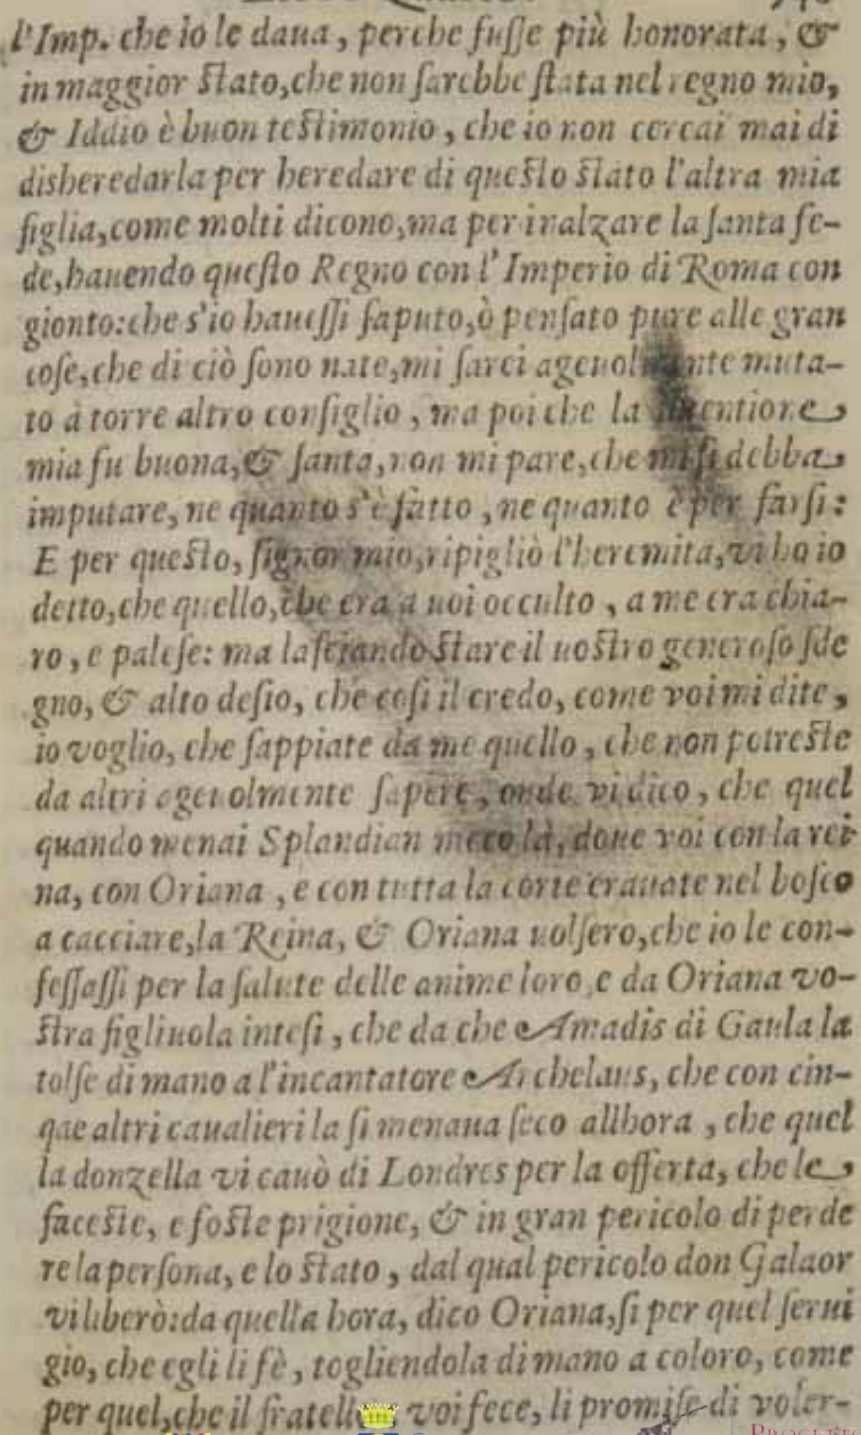 l'Imp. che io le daua, perche fusse più honorata, &
in maggior stato, che non sarebbe stata nel regno mio,
& Iddio è buon testimonio, che io non cercai mai di
disheredarla per heredare di questo stato l'altra mia
figlia, come molti dicono, ma per inalzare la santa fe-
de, hauendo questo Regno con l'Imperio di Roma con
gionto: che s'io hauessi saputo, ò pensato pure alle gran
cose, che di ciò sono nate, mi sarei ageuolmente muta-
to à torre altro consiglio, ma poi che la intentione
mia fu buona, & santa, non mi pare, che mi si debba
imputare, ne quanto s'è fatto, ne quanto è per farsi:
E per questo, signor mio, ripigliò l'heremita, vi ho io
detto, che quello, che era a uoi occulto, a me era chia-
ro, e palese: ma lasciando stare il uostro generoso sde
gno, & alto desio, che cosi il credo, come voi mi dite,
io voglio, che sappiate da me quello, che non potreste
da altri ageuolmente sapere, onde vi dico, che quel
quando menai Splandian meco là, doue voi con la rei
na, con Oriana, e con tutta la corte erauate nel bosco
a cacciare, la Reina, & Oriana uolsero, che io le con-
fessassi per la salute delle anime loro, e da Oriana vo-
stra figliuola intesi, che da che Amadis di Gaula la
tolse di mano a l'incantatore Archelaus, che con cin-
que altri caualieri la si menaua seco allhora, che quel
la donzella vi cauò di Londres per la offerta, che le
faceste, e foste prigione, & in gran pericolo di perde
re la persona, e lo stato, dal qual pericolo don Galaor
vi liberò: da quella hora, dico Oriana, si per quel serui
gio, che egli li fè, togliendola di mano a coloro, come
per quel, che il fratello voi fece, li promise di voler-